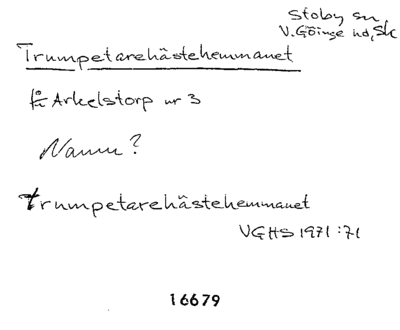 Stoby sn
V. Göinge hd, Sk
Trumpetarehästehemmanet
fr Arkelstorp nr 3
Namn?
Trumpetarehästehemmanet
VGHS 1971:71
16679